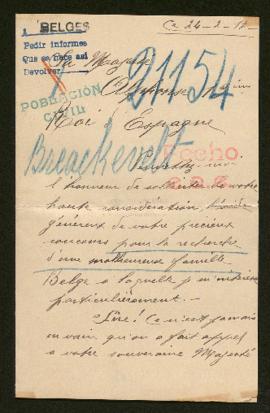 BELGES
Ce 24-2-18
Pedir informes
Que se hace así
Devolver
Sa Majesté
Alphonse XIII
21154
POBLACIÓN
CIVIL
Roi Espagne
Breackevelt
Hecho
l'honneur de solliciter de votre
haute considération
généreux de votre précieux
concours pour la recherche
d'une malheureuse famille
Belge à laquelle je m'intéresse
particulièrement.
Sire! Ce n'est jamais
en vain qu'on a fait appel
à votre souveraine Majesté